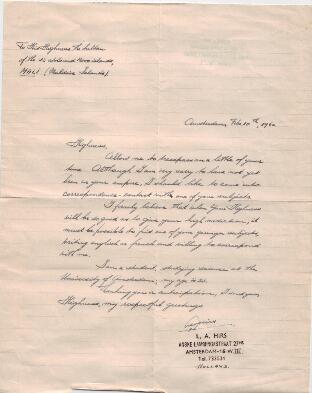 To His Highness the Sultan
of the 12 thousand islands,
MALI (Maldive Islands)
Amsterdam, Febr. 10th, 1960
Highness,
Allow me to trespass on a little of your
time. Although I am very sorry to have not yet
been in your empire, I should like to come into
correspondence-contact with one of your subjects.
I firmly believe that when your Highness
will be so good as to give your high mediation, it
must be possible to find one of your younger subjects,
writing english or french and willing to correspond
with me.
I am a student, studying science at the
University of Amsterdam; my age is 20.
Thanking you in anticipation, I send you
Highness, my respectful greetings
L. A. HIRS
WIEKE
STRAAT 27
AMSTERDAM-
Tel.
HOLLAND.